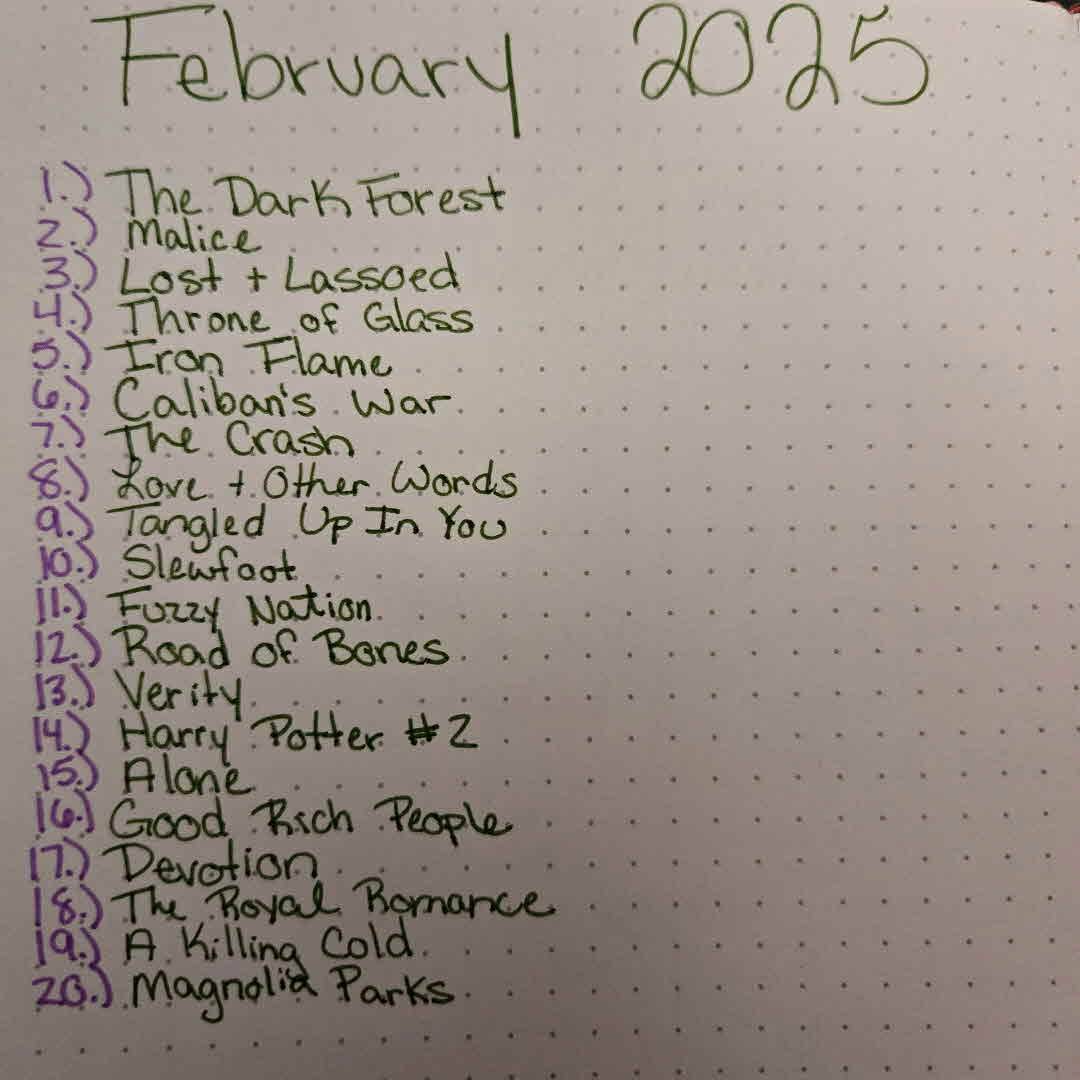 February 2025
1.) The Dark Forest
2.) Malice
3.) Lost + Lassoed
4.) Throne of Glass
5.) Iron Flame
6.) Caliban's War
7.) The Crash
8.) Love + Other Words
9.) Tangled Up In You
10.) Slewfoot
11.) Fuzzy Nation
12.) Road of Bones
13.) Verity
14.) Harry Potter #2
15.) Alone
16.) Good Rich People
17.) Devotion
18.) The Royal Romance
19.) A Killing Cold
20.) Magnolia Parks